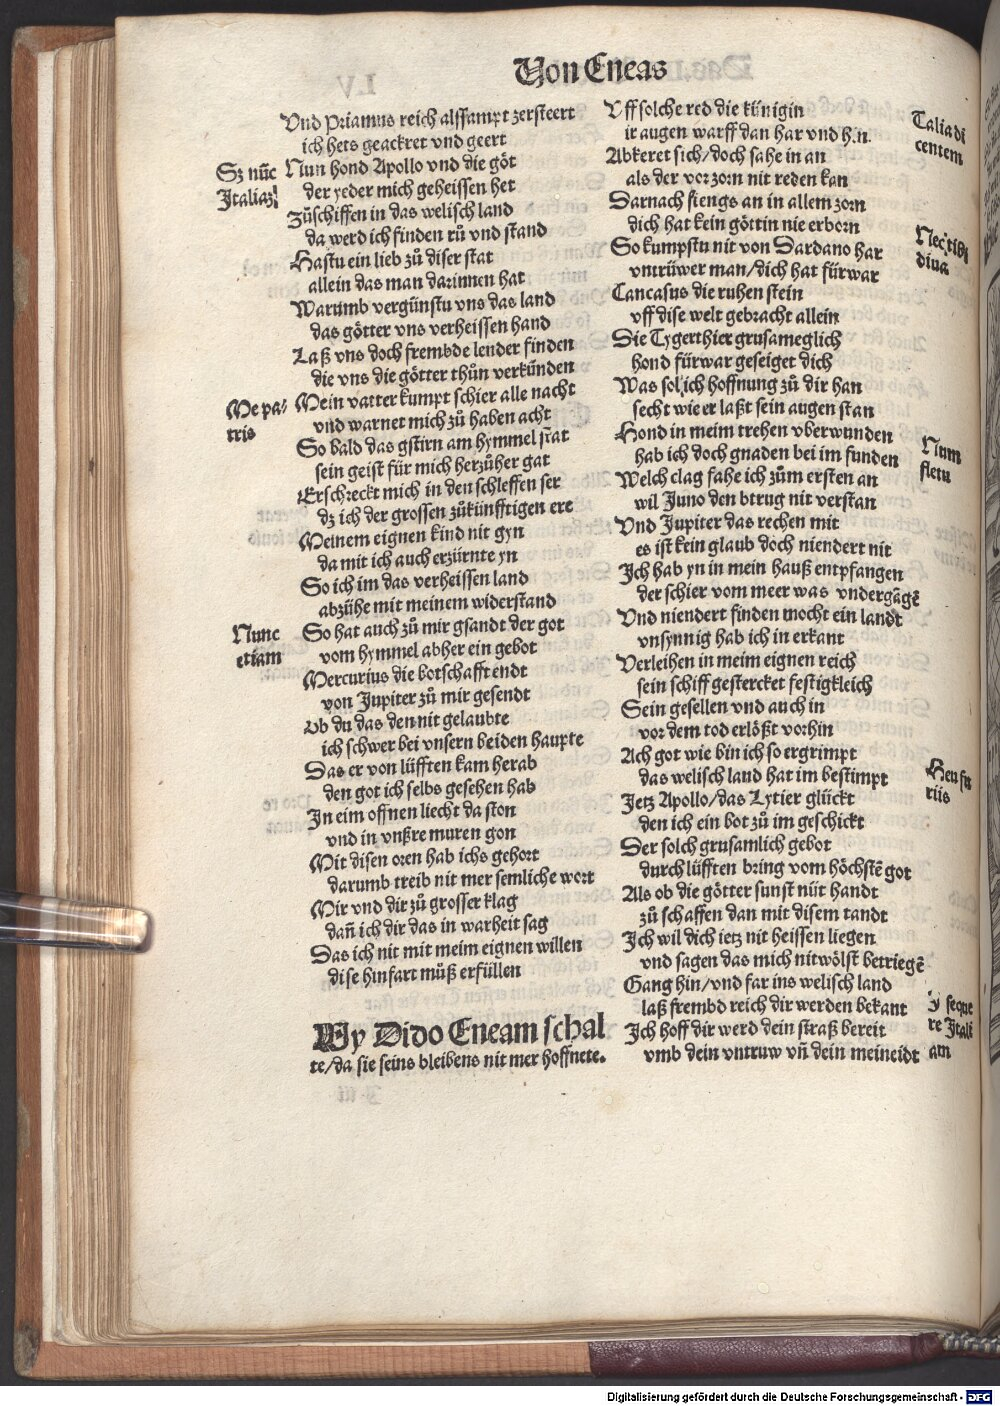 Von Eneas
Vnd Priamus reich alssampt zersteert
ich hets geackret vnd geert
Sz nūc
Italiaz
Nun hond Apollo vnd die göt
der yeder mich geheissen het
Zůschiffen in das welisch land
da werd ich finden rů vnd stand
Hastu ein lieb zů diser stat
allein das man darinnen hat
Warumb vergünstu vns das land
das götter vns verheissen hand
Laß vns doch frembde lender finden
die vns die götter thůn verkünden
Me pa/
tris
Mein vatter kumpt schier alle nacht
vnd warnet mich zů haben acht
So bald das gstirn am hymmel stat
sein geist für mich herzůher gat
Erschreckt mich in den schleffen ser
dz ich der grossen zůkünfftigen ere
Meinem eignen kind nit gyn
da mit ich auch erzürnte yn
So ich im das verheissen land
abzühe mit meinem widerstand
Nunc
etiam
So hat auch zů mir gsandt der got
vom hymmel abher ein gebot
Mercurius die botschafft endt
von Jupiter zů mir gesendt
Ob du das den nit gelaubte
ich schwer bei vnsern beiden haupte
Das er von lüfften kam herab
den got ich selbs gesehen hab
In eim offnen liecht da ston
vnd in vnßre muren gon
Mit disen oren hab ichs gehort
darumb treib nit mer semliche wort
Mir vnd dir zů grosser klag
dañ ich dir das in warheit sag
Das ich nit mit meim eignen willen
dise hinfart můß erfüllen
Wy Dido Eneam schal
te/da sie seins bleibens nit mer hoffnete.
Vff solche red die künigin
ir augen warff dan har vnd h.n.
Talia di
centem
Abkeret sich/doch sahe in an
als der vor zorn nit reden kan
Darnach fiengs an in allem zorn
dich hat kein göttin nie erborn
Nec tibi
diua
So kumpstu nit von Dardano har
vntrüwer man/dich hat fürwar
Cancasus die ruhen stein
vff dise welt gebracht allein
Die Tygerthier grusameglich
hond fürwar geseiget dich
Was sol ich hoffnung zů dir han
secht wie er laßt sein augen stan
Hond in meim trehen vberwunden
hab ich doch gnaden bei im funden
Num
fletu
Welch clag fahe ich zům ersten an
wil Juno den btrug nit verstan
Vnd Jupiter das rechen mit
es ist kein glaub doch niendert nit
Ich hab yn in mein hauß entpfangen
der schier vom meer was vndergāgē
Vnd niendert finden mocht ein landt
vnsynnig hab ich in erkant
Verleihen in meim eignen reich
sein schiff gestercket festigkleich
Sein gesellen vnd auch in
vor dem tod erlößt vorhin
Ach got wie bin ich so ergrimpt
das welisch laud hat im bestimpt
Heu fu
riis
Jetz Apollo/das Lytier glückt
den ich ein bot zů im geschickt
Der solch grusamlich gebot
durch lüfften bring vom höchstē got
Als ob die götter sunst nüt handt
zů schaffen dan mit disem tandt
Ich wil dich ietz nit heissen liegen
vnd sagen das mich nit wölst betriegē
Gang hin/vnd far ins welisch land
laß frembd reich dir werden bekant
I seque
re Itali
am
Ich hoff dir werd dein straß bereit
vmb dein vntruw vñ dein meineidt
Digitalisierung gefördert durch die Deutsche Forschungsgemeinschaft - DFG